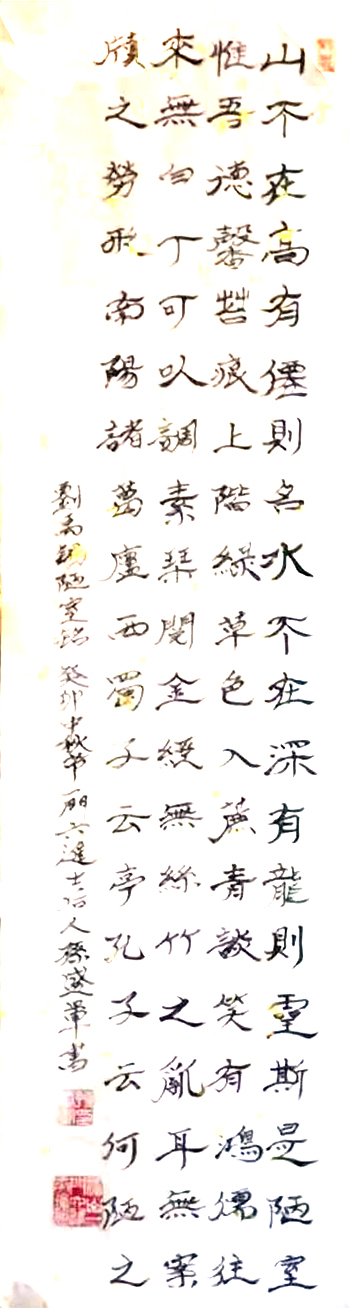 山不在高有僊則名水不在深有龍則靈斯是陋室
惟吾德馨苔痕上階綠草色入簾青談笑有鴻儒往
來無白丁可以調素琴閱金經無絲竹之亂耳無案
牘之勞形南陽諸葛廬西蜀子云亭孔子云何陋之
劉禹錫陋室銘 癸卯中秋節 人孫盛華書